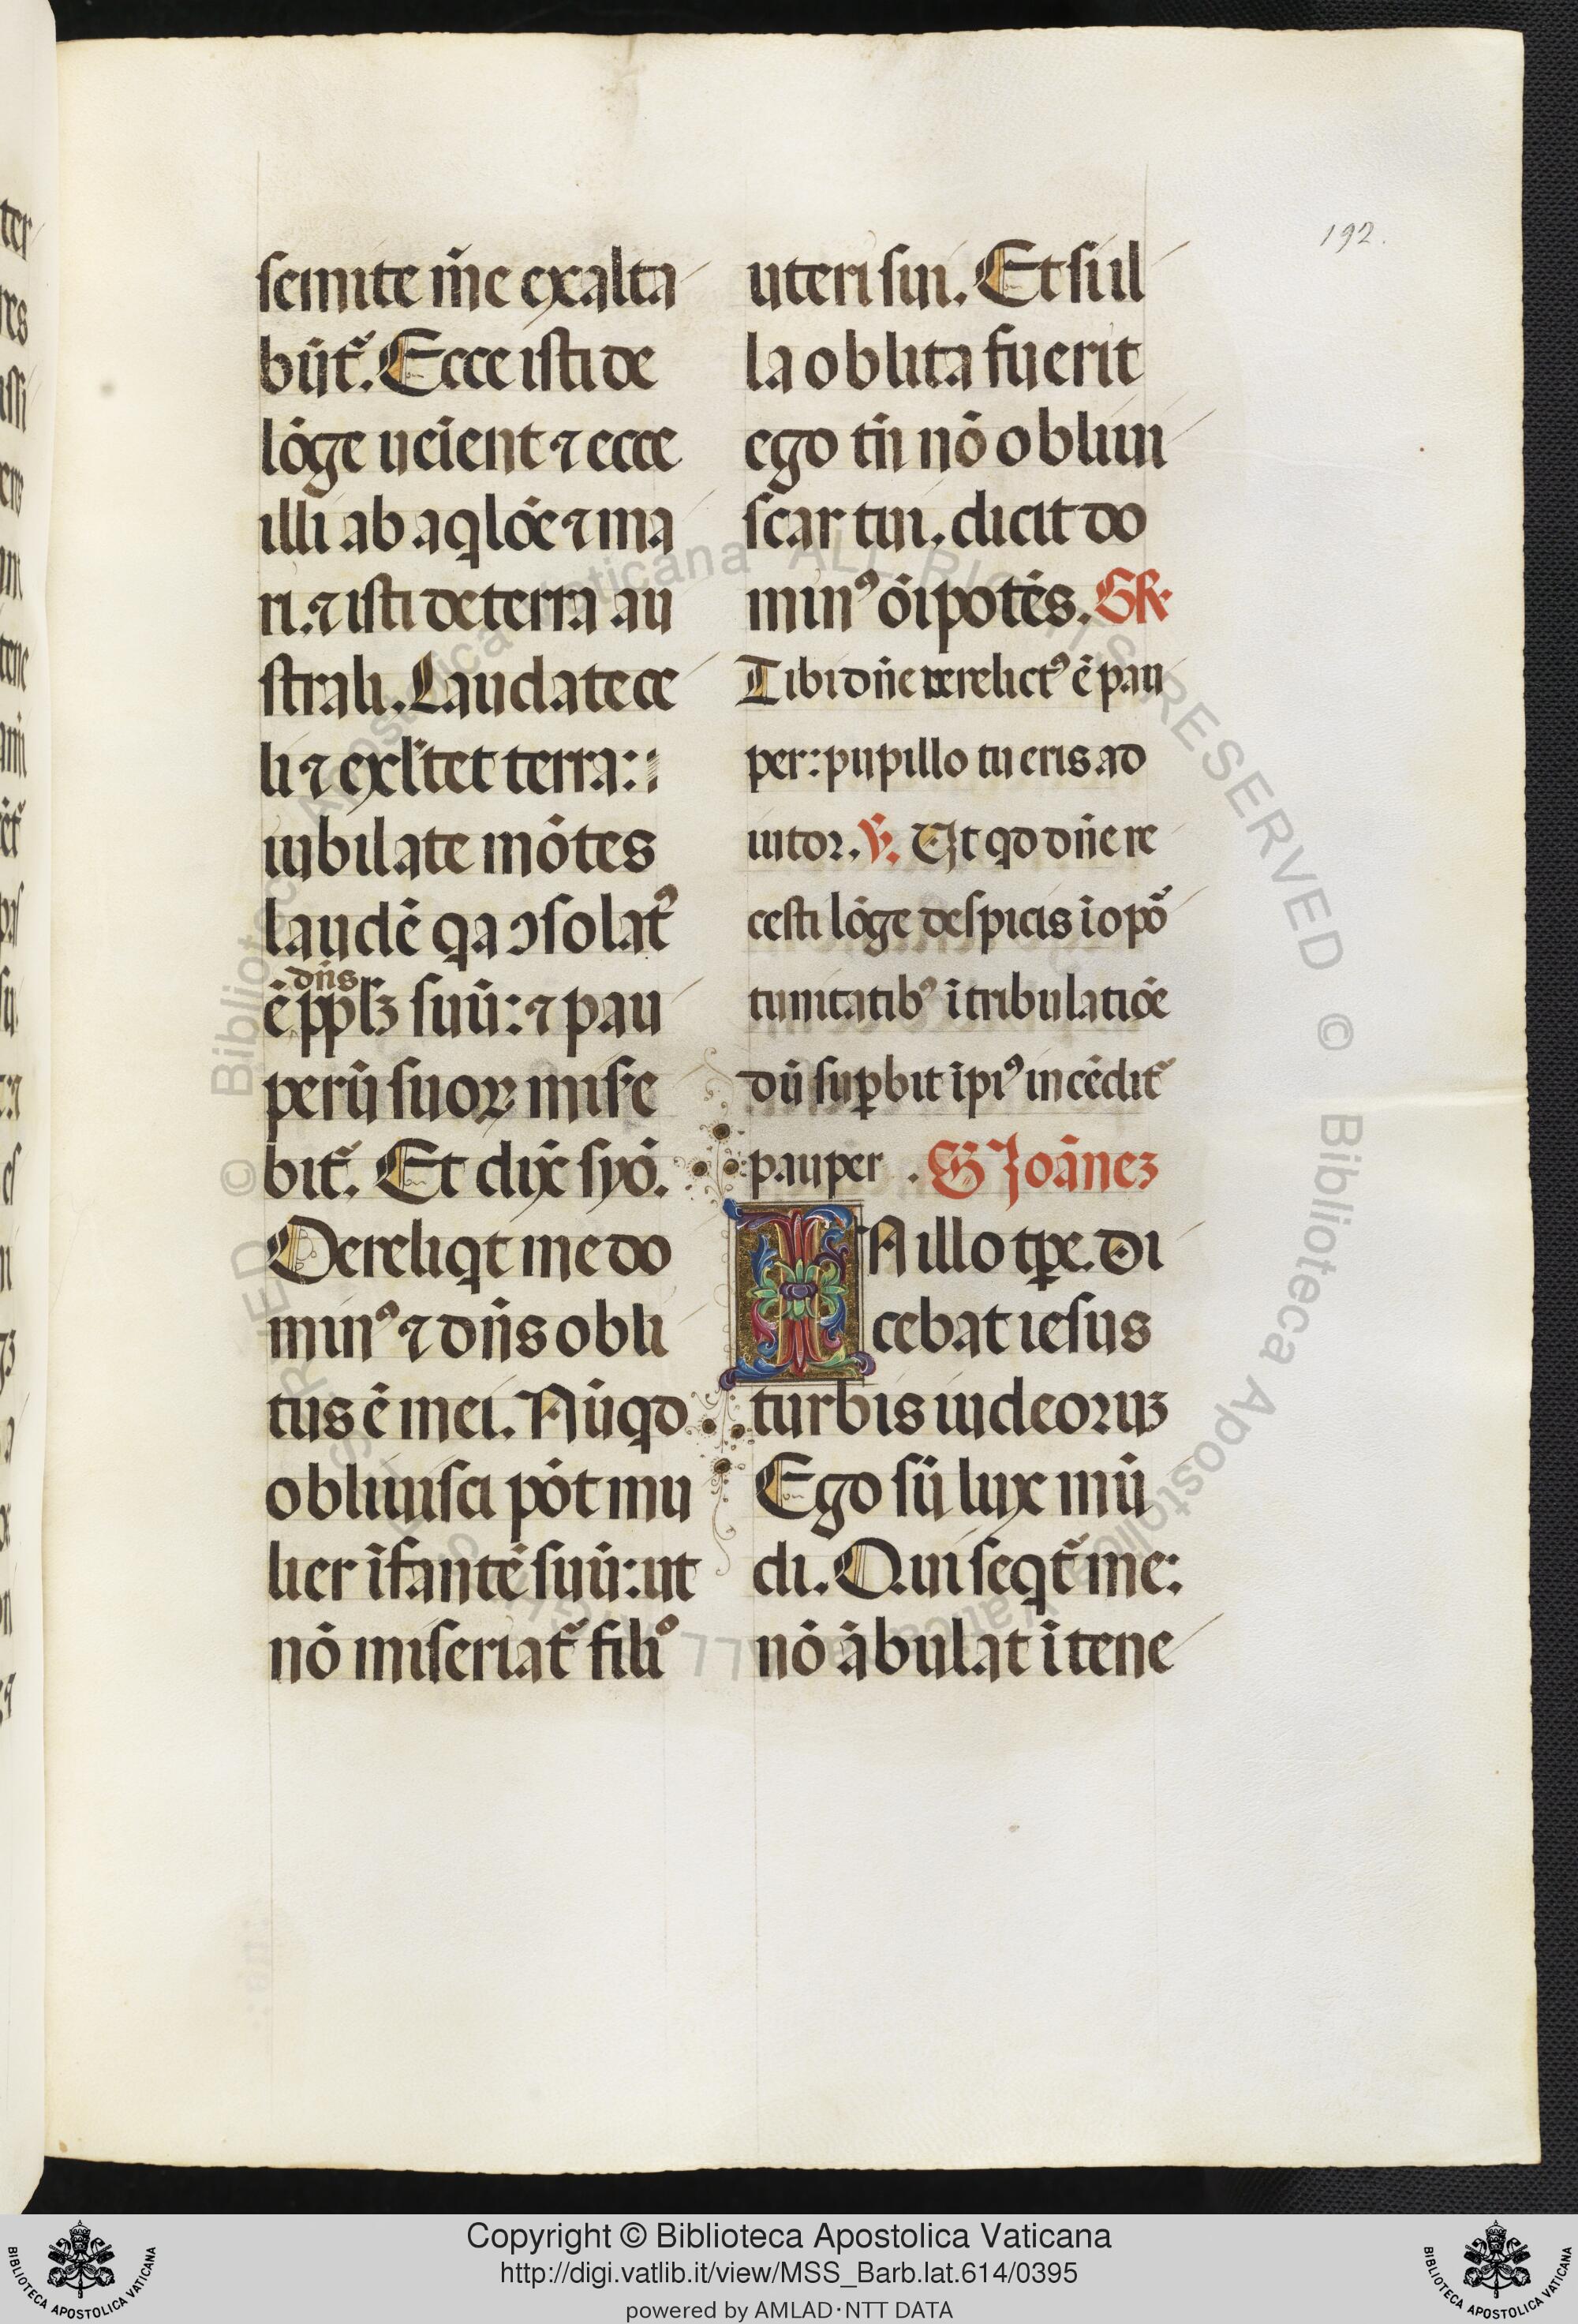 semite m̄e exalta
būt᷑. Ecce isti de
lōge ueient ⁊ ecce
illi ab aqlōe ⁊ ma
ri. ⁊ isti de terra au
strali. Laudate ce
li ⁊ exl̄tet terra:
iubilate mōtes
laudē qa ↄsolatꝰ
ē ppl̄ꝫ suū: ⁊ pau
dn̄s
perū suoꝝ mise
bit᷑. Et dix̄ syō.
Dereliqt me do
minꝰ ⁊ dn̄s obli
tus ē mei. Nūqd
obliuisci pōt mu
lier īfantē suū: ut
nō miseriat᷑ filiꝰ
uteri sui. Et si il
la oblita fuerit
ego tn̄ nō obliui
scar tui. dicit do
minꝰ oīpotēs. Gꝶ.
Tibi dn̄e rerelictꝰ ē pau
per: pupillo tu eris ad
iutor. ℣. Ut qd dn̄e re
cesti lōge despicis ī opō
tunitatibꝰ ī tribulatiōe
dū suꝑbit īpiꝰ incēdit᷑
pauper. S Joānez
IN illo tꝑe. Di
cebat iesus
turbis iudeoruꝫ
Ego sū lux mū
di. Qui seqt᷑ me:
nō ābulat ī tene
192.
© Biblioteca Apostolica Vaticana ALL RIGHTS RESERVED
© Biblioteca Apostolica Vaticana ALL RIGHTS RESERVED
BIBLIOTECA APOSTOLICA VATICANA
Copyright © Biblioteca Apostolica Vaticana
http://digi.vatlib.it/view/MSS_Barb.lat.614/0395
powered by AMLAD·NTT DATA
BIBLIOTECA APOSTOLICA VATICANA